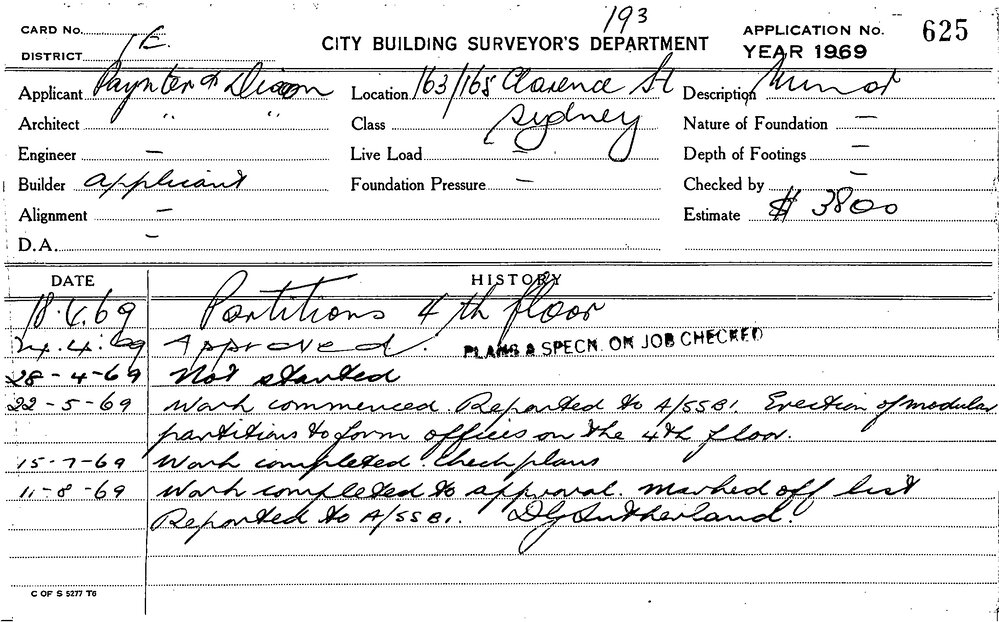 193
CARD No. APPLICATION No. 625
1E.
CITY BUILDING SURVEYOR'S DEPARTMENT
DISTRICT YEAR 1969
Applicant Paynter & Dixon Location 163/165 Clarence St Description Minor
Architect " " Class Sydney Nature of Foundation —
Engineer — Live Load — Depth of Footings —
Builder applicant Foundation Pressure — Checked by —
Alignment — Estimate $ 3800
D.A. —
DATE HISTORY
18.4.69 Partitions 4th floor
24.4.69 Approved. PLANS & SPECN. ON JOB CHECKED
28-4-69 Not started
22-5-69 Work commenced. Reported to A/SSBI. Erection of modular
partitions to form offices on the 4th floor.
15-7-69 Work completed. Check plans
11-8-69 Work completed to approval. Marked off list
Reported to A/SSBI. DG Sutherland.
C OF S 5277 T6